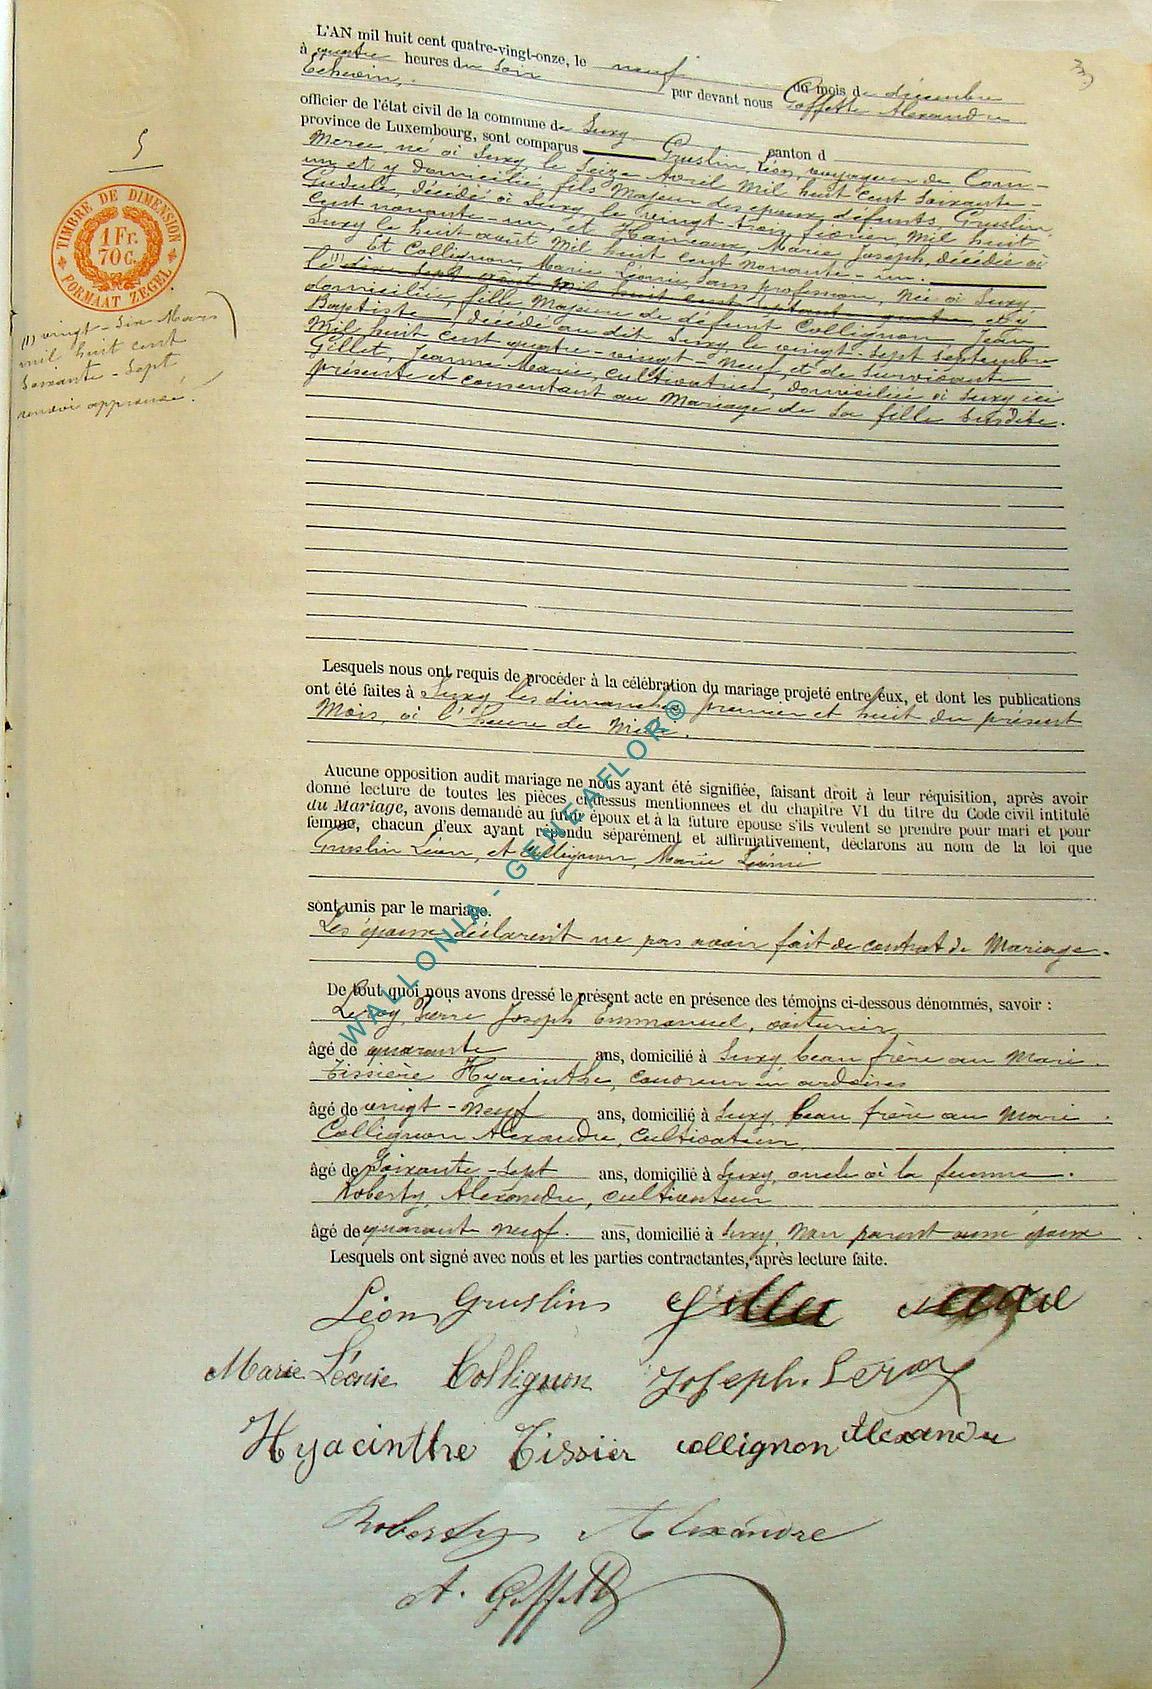 L'AN mil huit cent quatre-vingt-onze, le neuf du mois de décembre
à quatre heures du soir par devant nous Goffette Alexandre
Echevin,
officier de l'état civil de la commune de Suxy canton d
province de Luxembourg, sont comparus Gruslin, Léon, voyageur de Com-
merce, né à Suxy le seize Avril mil huit cent soixante-
un et y domicilié, fils Majeur des époux défunts Gruslin,
Gudule, décédé à Suxy, le vingt-trois février mil huit
cent nonante-un, et Marie Joseph, décédée à
Suxy le huit août mil huit cent nonante-un.
Et Collignon, Marie Léonie, sans profession, née à Suxy
le (1) dix sept août mil huit cent septante-quatre, et y
domiciliée, fille Majeure de défunt Collignon, Jean
Baptiste, décédé au dit Suxy, le vingt-sept Septembre
mil huit cent quatre-vingt-neuf, et de survivante
Gillet, Jeanne Marie, cultivatrice, domiciliée à Suxy ici
présente et consentant au Mariage de sa fille susdite.
5
TIMBRE DE DIMENSION
1 Fr.
70 C.
FORMAAT ZEGEL
(1) vingt-six Mars
mil huit cent
soixante-sept
renvoi approuvé.
Lesquels nous ont requis de procéder à la célébration du mariage projeté entre eux, et dont les publications
ont été faites à Suxy les dimanches premier et huit du présent
Mois, à l'heure de Midi.
Aucune opposition audit mariage ne nous ayant été signifiée, faisant droit à leur réquisition, après avoir
donné lecture de toutes les pièces ci-dessus mentionnées et du chapitre VI du titre du Code civil intitulé
du Mariage, avons demandé au futur époux et à la future épouse s'ils veulent se prendre pour mari et pour
femme, chacun d'eux ayant répondu séparément et affirmativement, déclarons au nom de la loi que
Gruslin Léon, et Collignon, Marie Léonie
sont unis par le mariage.
Les époux déclarent ne pas avoir fait de contrat de Mariage.
De tout quoi nous avons dressé le présent acte en présence des témoins ci-dessous dénommés, savoir :
Leroy, Pierre Joseph Emmanuel, voiturier,
âgé de quarante ans, domicilié à Suxy beau frère au Mari.
Tissière Hyacinthe, couvreur en ardoises
âgé de vingt-neuf ans, domicilié à Suxy, beau frère au Mari.
Collignon Alexandre, cultivateur,
âgé de Soixante-sept ans, domicilié à Suxy, oncle à la femme.
Roberty, Alexandre, cultivateur
âgé de quarante neuf. ans, domicilié à Suxy, Non parent aux époux
Lesquels ont signé avec nous et les parties contractantes, après lecture faite.
Léon Gruslin Gillet
Marie Léonie Collignon Joseph. Leroy
Hyacinthe Tissier collignon Alexandre
Roberty Alexandre
A. Goffette
WALLONIA - GENEAFLOR©